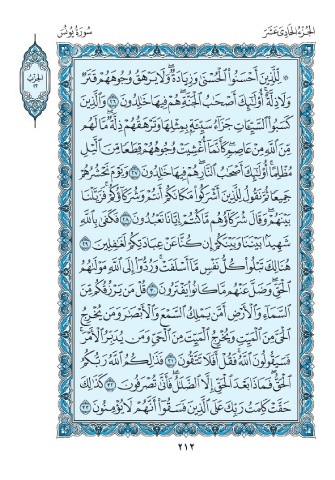 الجزء الحادي عشر
سورة يونس
الحزب
٢٢
۞ لِّلَّذِينَ أَحْسَنُوا۟ ٱلْحُسْنَىٰ وَزِيَادَةٌ ۖ وَلَا يَرْهَقُ وُجُوهَهُمْ قَتَرٌ
وَلَا ذِلَّةٌ ۚ أُو۟لَٰٓئِكَ أَصْحَٰبُ ٱلْجَنَّةِ ۖ هُمْ فِيهَا خَٰلِدُونَ ٢٦ وَٱلَّذِينَ
كَسَبُوا۟ ٱلسَّيِّـَٔاتِ جَزَآءُ سَيِّئَةٍۭ بِمِثْلِهَا وَتَرْهَقُهُمْ ذِلَّةٌ ۖ مَّا لَهُم
مِّنَ ٱللَّهِ مِنْ عَاصِمٍ ۖ كَأَنَّمَآ أُغْشِيَتْ وُجُوهُهُمْ قِطَعًا مِّنَ ٱلَّيْلِ
مُظْلِمًا ۚ أُو۟لَٰٓئِكَ أَصْحَٰبُ ٱلنَّارِ ۖ هُمْ فِيهَا خَٰلِدُونَ ٢٧ وَيَوْمَ نَحْشُرُهُمْ
جَمِيعًا ثُمَّ نَقُولُ لِلَّذِينَ أَشْرَكُوا۟ مَكَانَكُمْ أَنتُمْ وَشُرَكَآؤُكُمْ ۚ فَزَيَّلْنَا
بَيْنَهُمْ ۖ وَقَالَ شُرَكَآؤُهُم مَّا كُنتُمْ إِيَّانَا تَعْبُدُونَ ٢٨ فَكَفَىٰ بِٱللَّهِ
شَهِيدًۢا بَيْنَنَا وَبَيْنَكُمْ إِن كُنَّا عَنْ عِبَادَتِكُمْ لَغَٰفِلِينَ ٢٩
هُنَالِكَ تَبْلُوا۟ كُلُّ نَفْسٍ مَّآ أَسْلَفَتْ ۚ وَرُدُّوٓا۟ إِلَى ٱللَّهِ مَوْلَىٰهُمُ
ٱلْحَقِّ ۖ وَضَلَّ عَنْهُم مَّا كَانُوا۟ يَفْتَرُونَ ٣٠ قُلْ مَن يَرْزُقُكُم مِّنَ
ٱلسَّمَآءِ وَٱلْأَرْضِ أَمَّن يَمْلِكُ ٱلسَّمْعَ وَٱلْأَبْصَٰرَ وَمَن يُخْرِجُ
ٱلْحَىَّ مِنَ ٱلْمَيِّتِ وَيُخْرِجُ ٱلْمَيِّتَ مِنَ ٱلْحَىِّ وَمَن يُدَبِّرُ ٱلْأَمْرَ ۚ
فَسَيَقُولُونَ ٱللَّهُ ۚ فَقُلْ أَفَلَا تَتَّقُونَ ٣١ فَذَٰلِكُمُ ٱللَّهُ رَبُّكُمُ
ٱلْحَقُّ ۖ فَمَاذَا بَعْدَ ٱلْحَقِّ إِلَّا ٱلضَّلَٰلُ ۖ فَأَنَّىٰ تُصْرَفُونَ ٣٢ كَذَٰلِكَ
حَقَّتْ كَلِمَتُ رَبِّكَ عَلَى ٱلَّذِينَ فَسَقُوٓا۟ أَنَّهُمْ لَا يُؤْمِنُونَ ٣٣
٢١٢